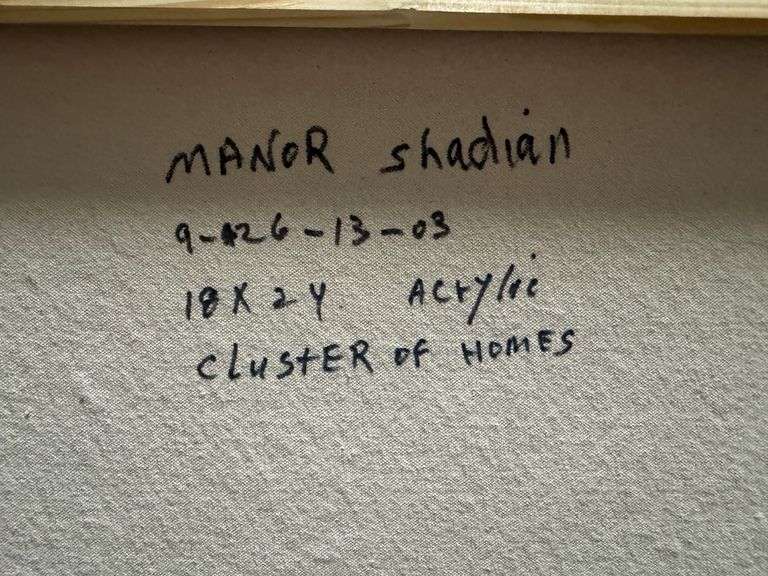 MANOR shadian
9-26-13-03
18 X 24 Acrylic
CLUSTER OF HOMES